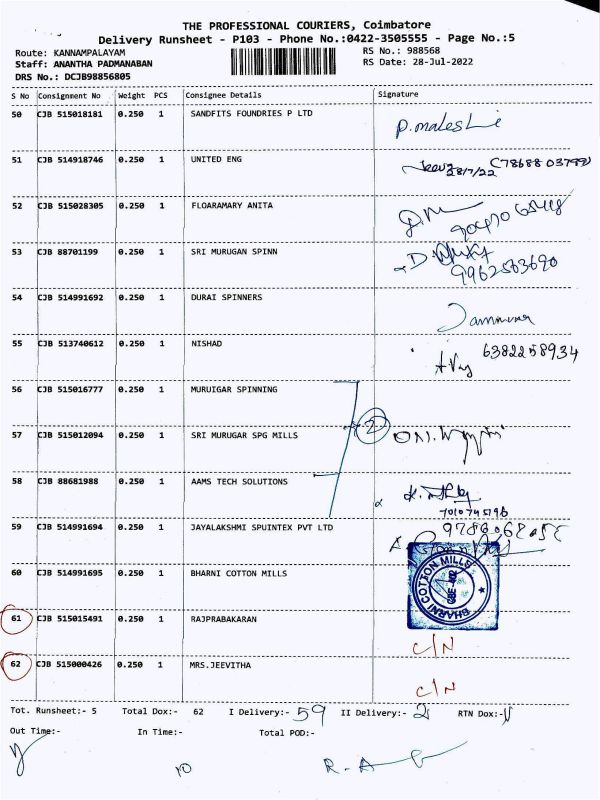 THE PROFESSIONAL COURIERS, Coimbatore
Delivery Runsheet - P103 - Phone No.:0422-3505555 - Page No.:5
Route: KANNAMPALAYAM RS No.: 988568
Staff: ANANTHA PADMANABAN RS Date: 28-Jul-2022
DRS No.: DCJB98856805
S No Consignment No Weight PCS Consignee Details Signature
50 CJB 515018181 0.250 1 SANDFITS FOUNDRIES P LTD
51 CJB 514918746 0.250 1 UNITED ENG
28/7/22
52 CJB 515028305 0.250 1 FLOARAMARY ANITA
53 CJB 88701199 0.250 1 SRI MURUGAN SPINN
9962563690
54 CJB 514991692 0.250 1 DURAI SPINNERS
55 CJB 513740612 0.250 1 NISHAD 6382258934
56 CJB 515016777 0.250 1 MURUIGAR SPINNING
57 CJB 515012094 0.250 1 SRI MURUGAR SPG MILLS 2
58 CJB 88681988 0.250 1 AAMS TECH SOLUTIONS
59 CJB 514991694 0.250 1 JAYALAKSHMI SPUINTEX PVT LTD
60 CJB 514991695 0.250 1 BHARNI COTTON MILLS
BHARNI COTTON MILLS
61 CJB 515015491 0.250 1 RAJPRABAKARAN C/N
62 CJB 515000426 0.250 1 MRS.JEEVITHA C/N
Tot. Runsheet:- 5 Total Dox:- 62 I Delivery:- 59 II Delivery:- 2 RTN Dox:-
Out Time:- In Time:- Total POD:-